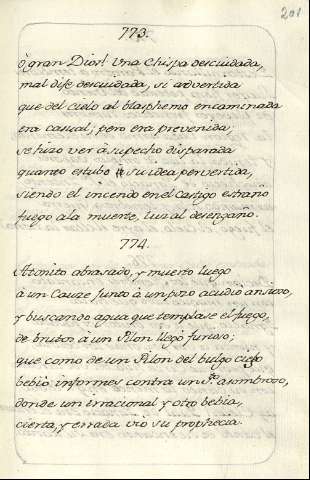 201
773.
ô gran Dios! Una Chispa descuidada,
mal dixe descuidada, si advertida
que del cielo al blasphemo encaminada
era casual; pero era prevenida;
se hizo ver â su pecho disparada
quanto estubo su idea pervertida,
siendo el incendio en el castigo estraño
fuego a la muerte, luz al desengaño.
774.
Atonito abrasado, y muerto luego
à un Cauze junto à un pozo acudio ansioso,
y buscando agua que templase el fuego,
de brutos à un Pilon llegó furioso;
que como de un Pilon del bulgo ciego
bebio informes contra un Sto. asombroso,
donde un irracional y otro bebia,
cierta, y errada vio su prophecia.